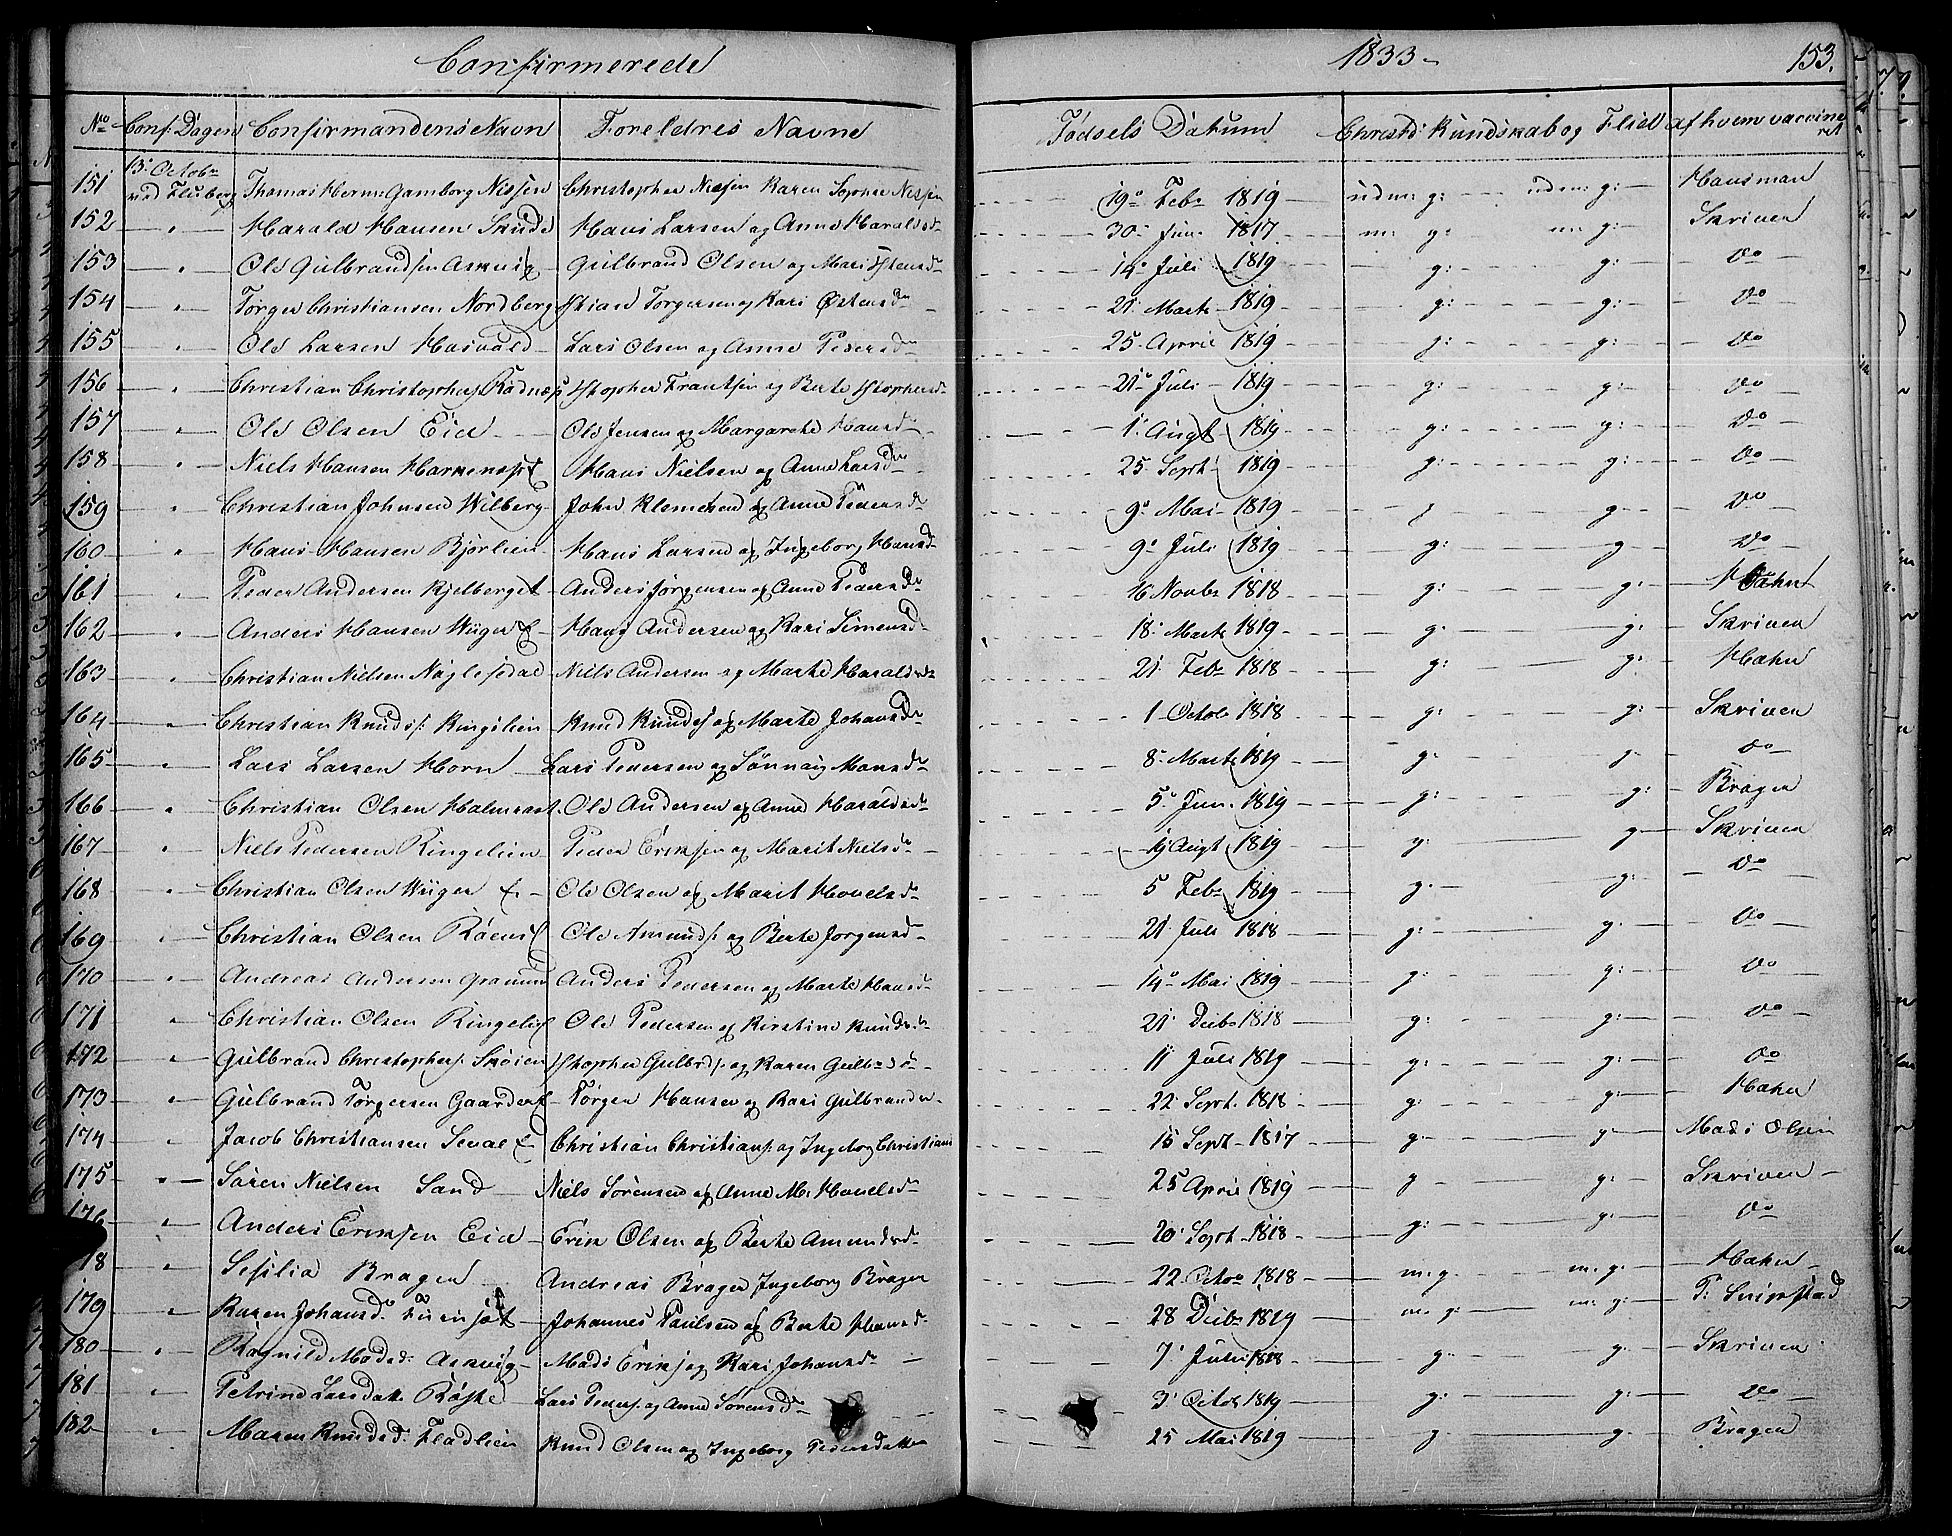 Confirmerede 1833 153.
No Conf: Dagen Confirmandens Navn Foreldres Navne Födsels Datum Christd: Kundskab og Fliid af hvem vaccineret
13 Octobr
151 ved Fluberg Thomas Herm: Gamborg Nissen Christopher Nissen Karen Sophie Nissen 19 Febr 1819 udm: g: udm: g: Hausman
152 " Harald Hansen Hans Larsen og Anne Haraldsdr 30 Jun 1817 m: g: m: g: Skriven
153 " Ole Gulbrandsen Askvig Gulbrand Olsen og Mari 14 Juli 1819 g: g: do
154 " Törger Christiansen Nordberg Xstian Torgersen og Kari Østensdr 21 Marts 1819 g: g: do
155 " Ole Larsen Lars Olsen og Anne Pedersdr 25 April 1819 g: g: do
156 " Christian Christophers Rödnæs Xstopher Frantsen og Berte Xstophersdr 21 Juli 1819 g: g: do
157 " Ole Olsen Eid Ole Jensen og Margarete Hansdr 1 Augt 1819 g: g: do
158 " Niels Hansen Hans Nielsen og Anne Larsdr 25 Sept 1819 g: g: do
159 " Christian Johnsen Wilberg John Klemetsen og Anne Pedersdr 9 Mai 1819 g g do
160 " Hans Hansen Bjørlien Hans Larsen og Ingeborg Hansdr 9 Juli 1819 g: g do
161 " Peder Andersen Kjelberget Anders Jörgensen og Anne Pedersdr 16 Novbr 1818 g: g: Hahn
162 " Anders Hansen Wiiger Hans Andersen og Kari Simensd 18 Marts 1819 g: g: Skriven
163 " Christian Nielsen Niels Andersen og Marte Haraldsdr 21 Febr 1818 g: g: Hahn
164 " Christian Knuds: Ringelien Knud Knuds og Marte Johansdr 1 Octob 1818 g: g: Skriven
165 " Lars Larsen Horn Lars Pedersen og Sönnøig Hansdr 8 Marts 1819 g: g do
166 " Christian Olsen Halmrast Ole Andersen og Anne Haraldsdr 5 Jun 1819 g: g: Bragen
167 " Niels Pedersen Ringelien Peder Eriksen og Marit Nielsdr 19 Augt 1819 g: g Skriven
168 " Christian Olsen Wiiger Ole Olsen og Marit Hovelsdr 5 Febr 1819 g: g: do
169 " Christian Olsen Ole Amunds: og Berte Jörgensdr 21 Juli 1818 g: g: do
170 " Andreas Andersen Anders Pedersen og Marte Hansdr 14 Mai 1819 g: g: do
171 " Christian Olsen Ole Pedersen og Kirstine Knudsdr 21 Decbr 1818 g: g: do
172 " Gulbrand Christophers: Skøien Xstopher Gulbrds: og Karen Gulbrsdr 11 Juli 1819 g: g: do
173 " Gulbrand Törgersen Törger Hansen og Kari Gulbrandsdr 22 Sept. 1818 g: g: Hahn
174 " Jacob Christiansen Christian Christians: og Ingeborg Christians 15 Sept 1817 g: g Mads Olsen
175 " Sören Nielsen Sand Niels Sörensen og Anne M: Hovelsdr 25 April 1819 g g: Skriven
176 " Anders Eriksen Eid Erik Olsen og Berte Amundsdr 20 Sept 1818 g: g: do
178 " Sesilia Bragen Andreas Bragen Ingeborg Bragen 22 Octo 1818 m: g m: g: Hahn
179 " Karen Johansd: Johannes Paulsen og Berte Hansd: 28 Decbr 1819 m: g: m: g: P:
180 " Ragnild Madsd: Askvig Mads Eriks og Kari Johansdr 7 Juli 1818 g: g: Skriven
181 " Petrine Larsdatr Röste Lars Peders: og Anne Sörensdr 3 Octob 1819 g: g: do
182 " Maren Knudsd: Fladlien Knud Olsen og Ingeborg Pedersdatter 25 Mai 1819 g: g: Bragen